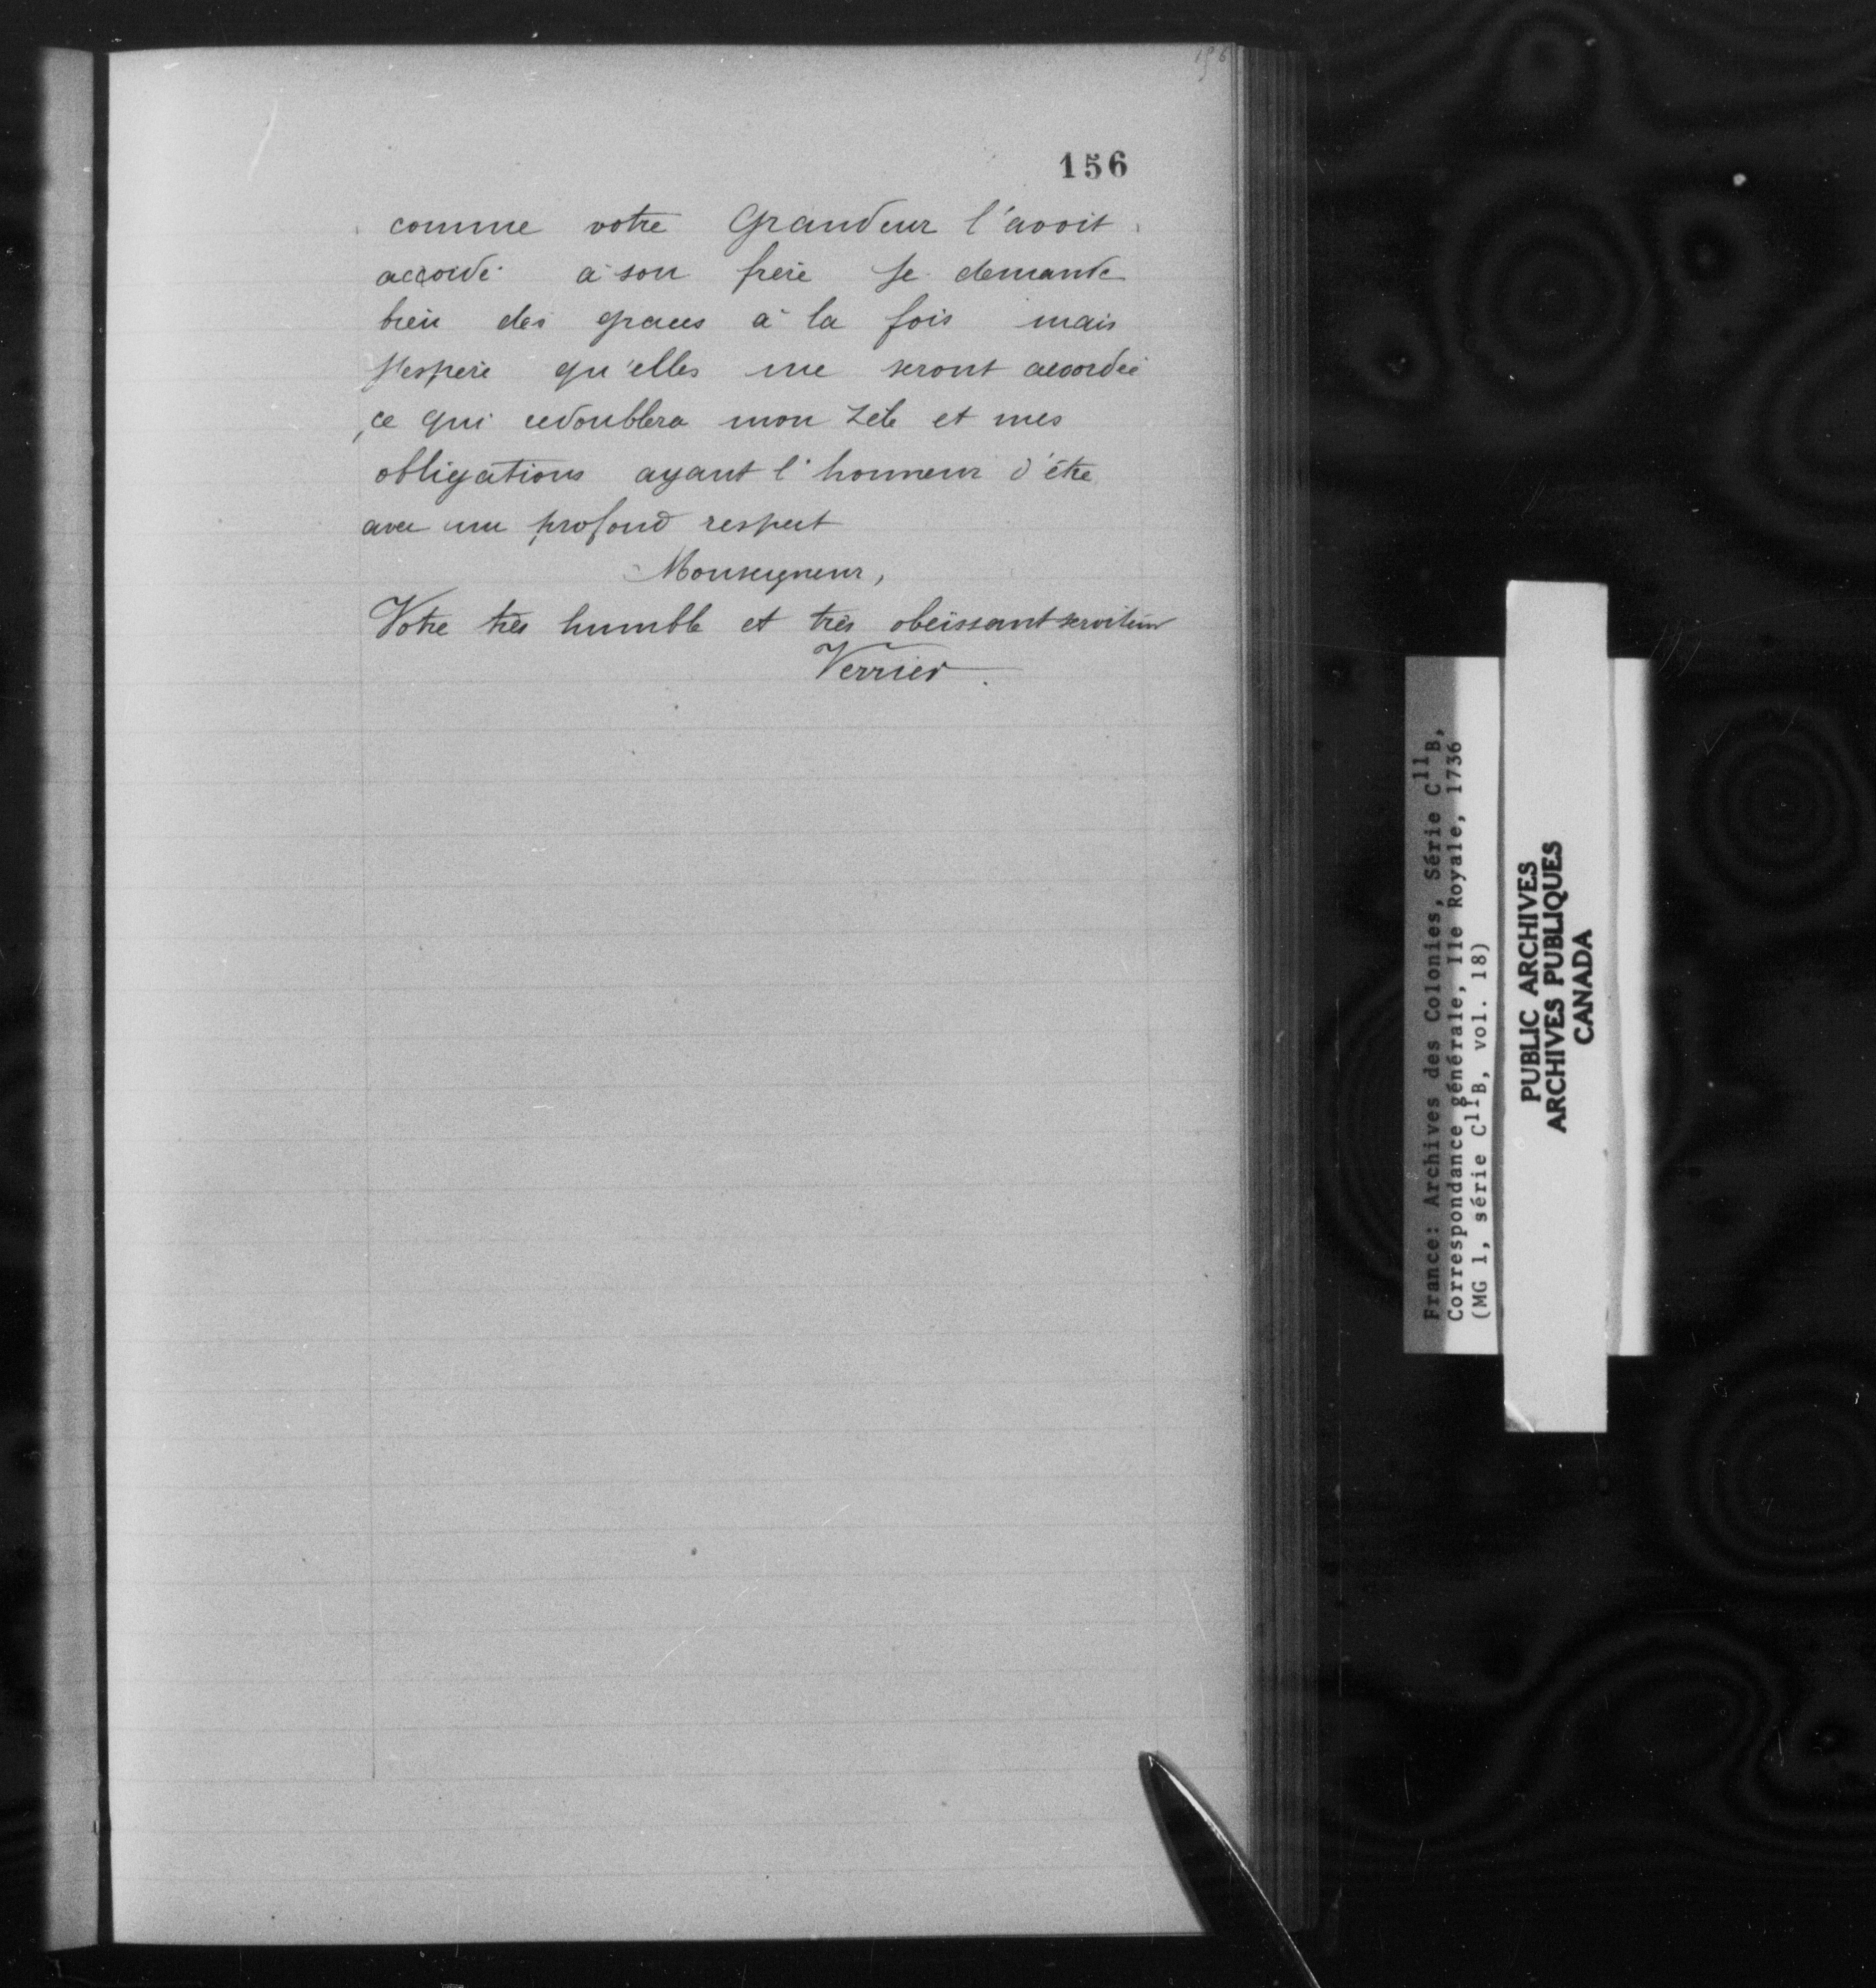 156
156
comme votre Grandeur l'avoit
accordé à son frère Je demande
bien des graces à la fois mais
J'espère qu'elles me seront accordée
ce qui redoublera mon zele et mes
obligations ayant l'honneur d'être
avec un profond respect
Monseigneur,
Votre très humble et très obeïssant serviteur
Verrier.
France: Archives des Colonies, Série C11B,
Correspondance générale, Ile Royale, 1736
(MG 1, série C11B, vol. 18)
PUBLIC ARCHIVES
ARCHIVES PUBLIQUES
CANADA